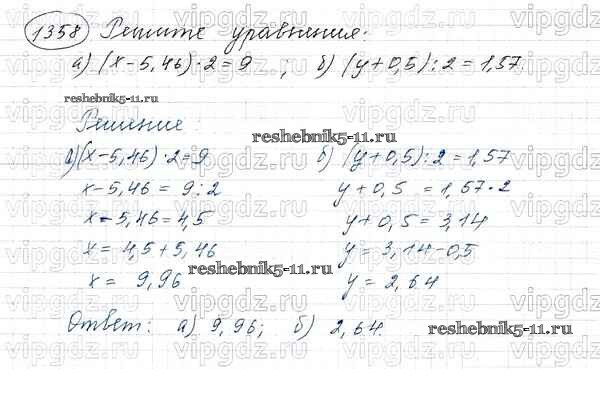 1358 Решите уравнения:
а) (x-5,46)·2=9 ; б) (y+0,5):2=1,57
reshebnik5-11.ru
Решение
reshebnik5-11.ru
а) (x-5,46)·2=9 б) (y+0,5):2=1,57
x-5,46 = 9:2 y+0,5 = 1,57·2
x-5,46=4,5 y+0,5=3,14
x= 4,5+5,46 y= 3,14-0,5
x= 9,96 y= 2,64
reshebnik5-11.ru
Ответ: а) 9,96; б) 2,64.
reshebnik5-11.ru
vipgdz.ru